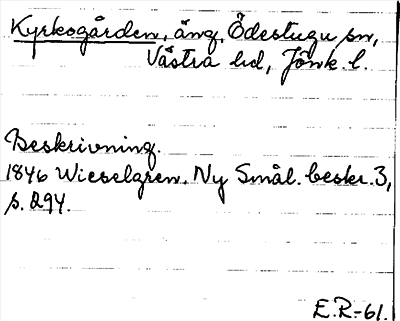 Kyrkogården, äng, Ödestugu sn,
Västra hd, Jönk. l.
Beskrivning.
1846 Wieselgren. Ny Smål. beskr. 3,
s. 294.
E.R.-61.